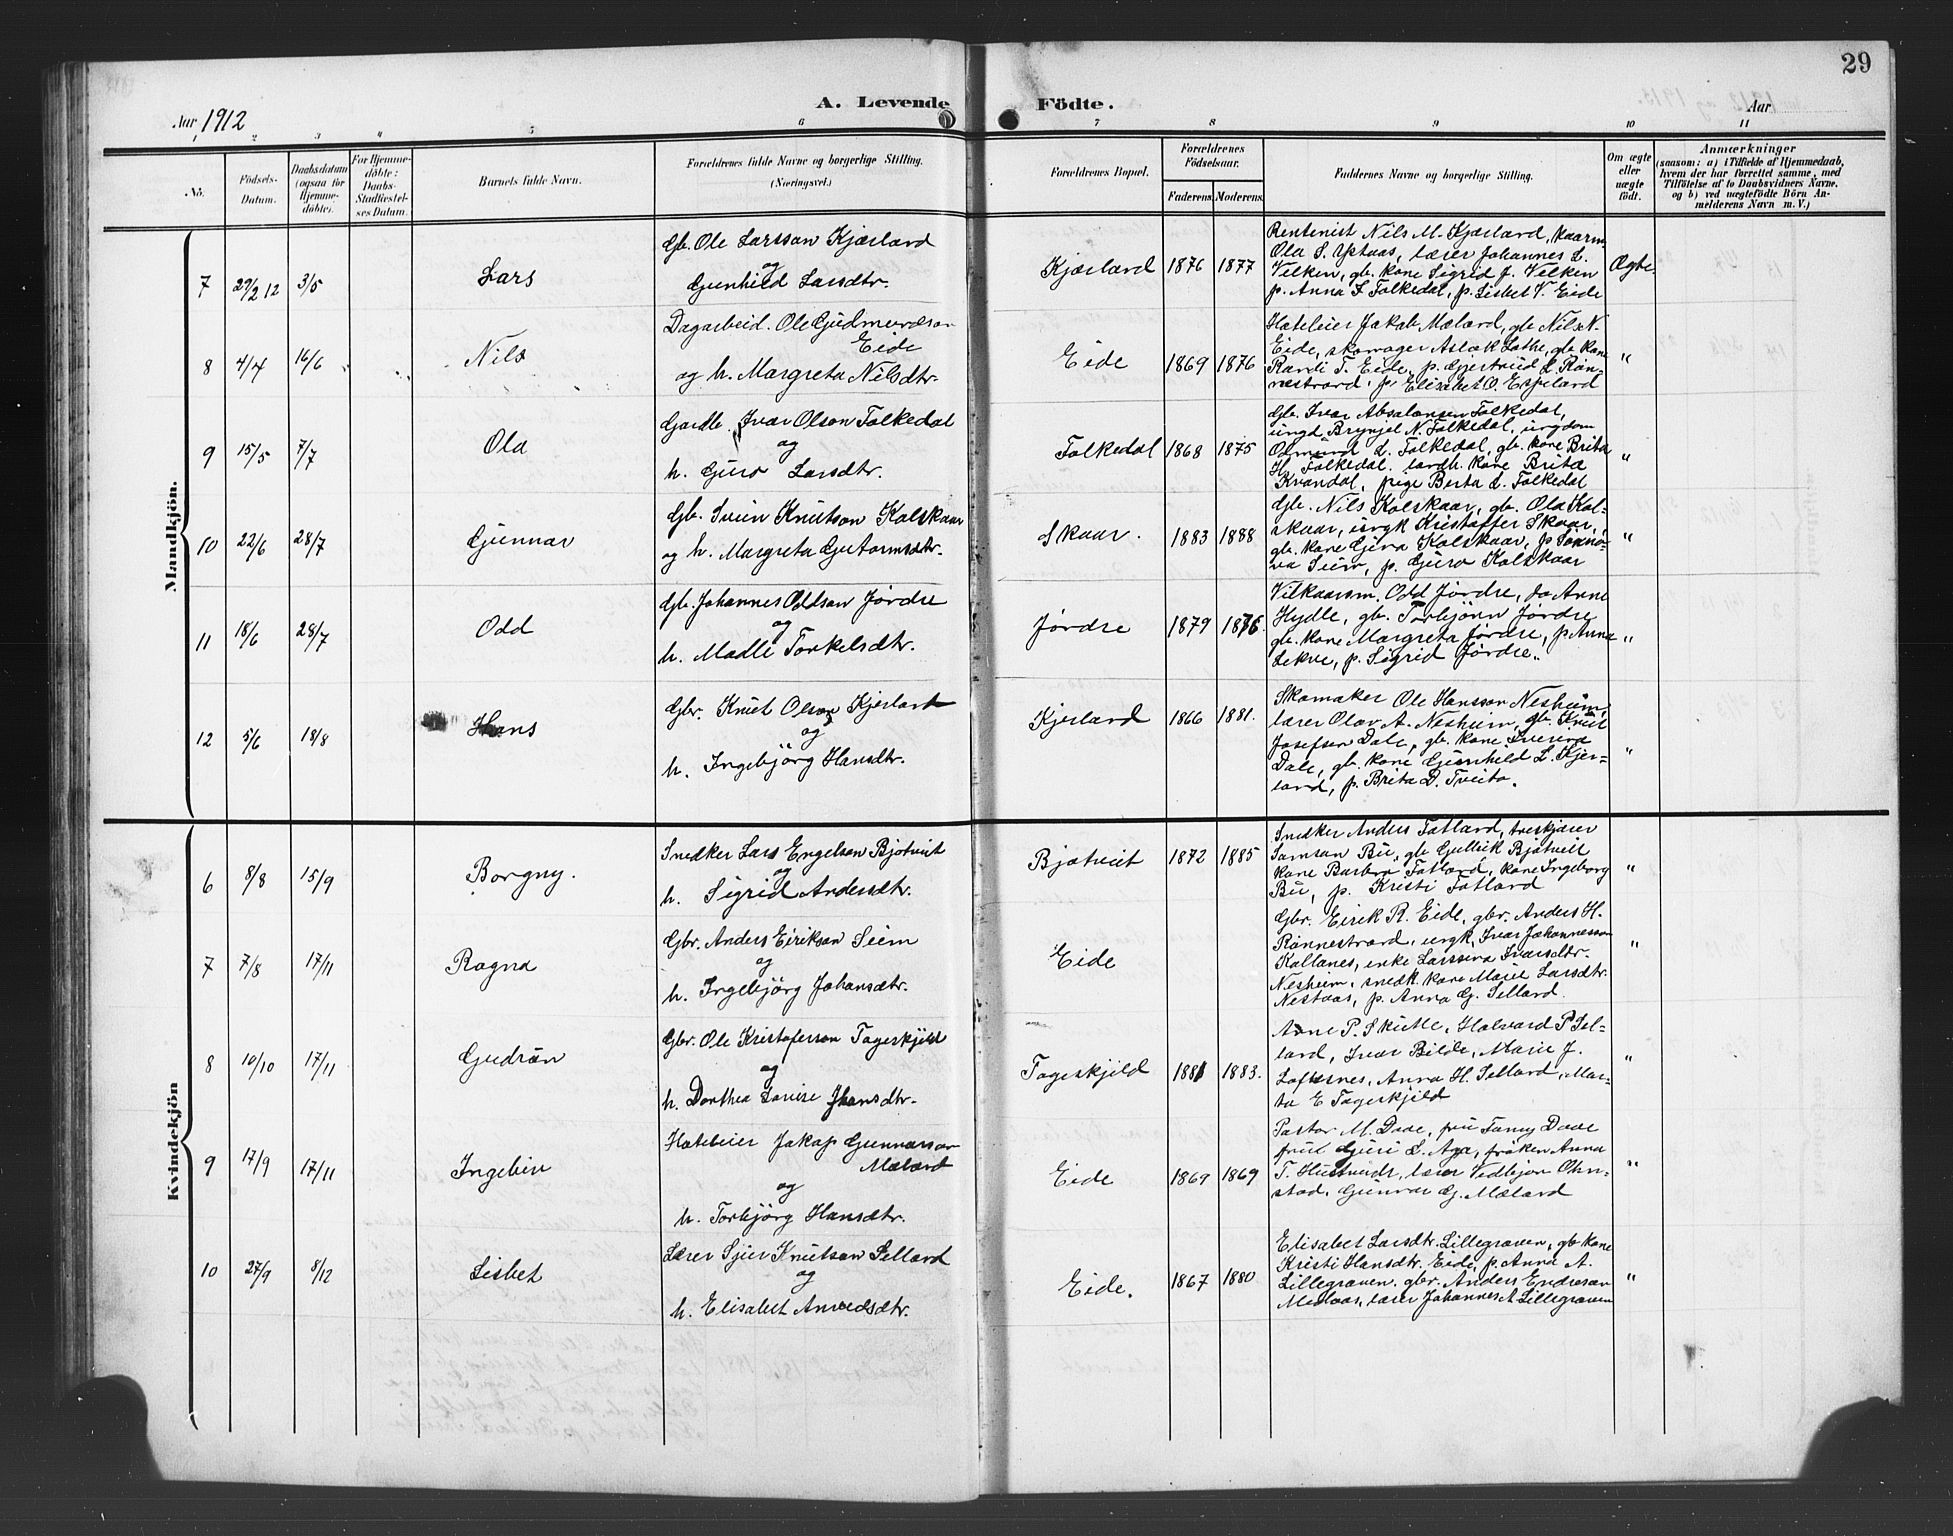 29
Aar 1912
A. Levende Födte.
Aar
1 2 3 4 5 6 7 8 9 10 11
No.
Födsels-Datum.
Daabsdatum (ogsaa for Hjemme-döbte).
For Hjemme-döbte: Daabs-Stadfæstel-ses Datum.
Barnets fulde Navn.
Forældrenes fulde Navne og borgerlige Stilling. (Næringsvei.)
Forældrenes Bopæl.
Forældrenes Födselsaar.
Faderens. Moderens.
Faddernes Navne og borgerlige Stilling.
Om ægte eller uægte födt.
Anmærkninger
(saasom: a) i Tilfælde af Hjemmedaab,
hvem der har forrettet samme, med
Tilföielse af to Daabsvidners Navne,
og b) ved uegtefödte Börn An-
melderens Navn m. V.)
Mandkjön.
7 29/2 12 3/5 Lars
Gb. Ole Larsson Kjærland
og
Gunhild Larsdtr.
Kjærland 1876 1877
Rentenist Nils M. Kjærland, kaarm
Ola S. Ystaas, lærer Johannes L.
Vilken, gb. kone Sigrid J. Vilken
p. Anna I Folkedal, p. Lisbet V. Eide
Ægte.
8 4/4 16/6 Nils
Dagarbeid. Ole Gudmundson
Eide
og h. Margreta Nilsdtr.
Eide 1869 1876
Hoteleier Jakob Mæland, gb Nils N.
Eide, skomager Aslak Lothe, gb. kone
Randi T. Eide, p. Gjertrud L Røn-
nestrand, p. Elisabet O. Espeland
"
9 15/5 7/7 Ola
Gardb. Ivar Olson Folkedal
og
h. Guro Larsdtr.
Folkedal 1868 1875
Gb. Ivar Absalonsen Folkedal,
ungd Brynjel N. Folkedal, ungdom
Olmund L. Folkedal, gb. kone Brita
H. Folkedal. landh. kone Brita
Kvandal, pige Berta L. Folkedal
"
10 22/6 28/7 Gunnar
Gb. Svein Knutson Kolskaar
og h. Margreta Gutormsdtr.
Skaar. 1883 1888
Gb. Nils Kolskaar, gb. Ola Kol-
skaar, ungk Kristoffer Skaar,
gb. kone Gjøa Kolskaar, p Synnø-
va Seim, p. Guro Kolskaar
"
11 18/6 28/7 Odd
Gb. Johannes Oddson Jørdre
og
h. Madli Torkelsdtr.
Jørdre 1879 1876.
Vilkaarsm. Odd Jørdre, do Arne
Hydle, gb. Torbjörn Jørdre
gb. kone Margreta Jørdre, p. Anna
Lekve, p. Sigrid Jørdre.
"
12 5/6 18/8 Hans
Gbr. Knut Olson Kjerland
og
h. Ingebjörg Hansdtr.
Kjerland 1866 1881.
Skomaker Ole Hansson Nesheim,
lærer Olav A. Nesheim, gb. Knut
Josefsen Dale, gb. kone
Dale, gb. kone Gunhild L. Kjer-
land, p. Brita D. Tveito.
"
Kvindekjön
6 8/8 15/9 Borgny.
Snedker Lars Engelson Bjotveit
og
h. Sigrid Andersdtr.
Bjotveit 1872 1885
Snedker Anders Fatland, treskjærer
Samson Bu, gb Gullik Bjotveit
kone Barbra Fatland, kone Ingeborg
Bu, p. Kristi Fatland
"
7 7/8 17/11 Ragna
Gbr. Anders Eirikson Seim
og
h. Ingebjörg Johansdtr.
Eide
Gbr. Eirik R. Eide, gbr. Anders H.
Rønnestrand, ungk. Ivar Johannesson
Kollanes, enke Larssina Ivarsdtr.
Nesheim, snedk. kone Marie Larsdtr.
Nestaas, p. Anna G. Selland.
"
8 10/10 17/11 Gudrun
Gbr. Ole Kristoferson Tageskjeld
og
h. Dorthea Lovise Jhansdtr.
Tageskjeld 1881 1883.
Arne P. Skutle, Halvard P Sel-
land, Ivar Bilde, Marie J.
Loftesnes, Anna H. Selland, Mar-
ta E Tageskjeld
"
9 17/9 17/11 Ingebiu
Hoteleier Jakop Gunnarson
Mæland
og
h. Torbjörg Hansdtr.
Eide 1869 1869
Pastor M. Daae, fru Fanny Daae
frue Guri L. Aga, frøken Anna
T. Hustvedt, lærer Vidbjør Ohn-
stad, Gunvar G. Mæland
"
10 27/9 8/12 Lisbet
Lærer Sjur Knutson Selland
og
h. Elisabet Anvedsdtr.
Eide. 1867 1880
Elisabet Larsdtr. Lillegraven, gb kone
Kristi Hansdtr. Eide, p. Anna A.
Lillegraven. gbr. Anders Endreson
Medaas, lærer Johannes A Lillegraven
"